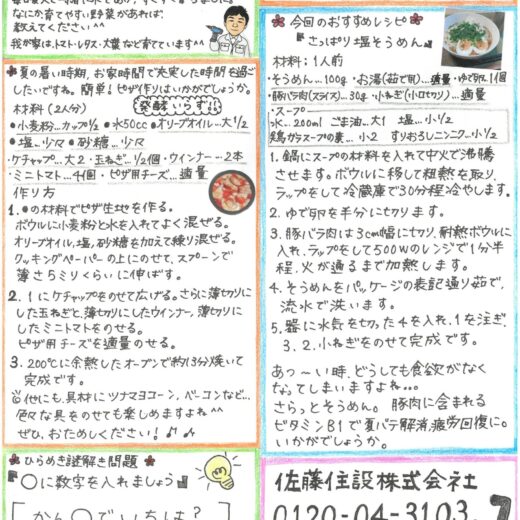 なにか育てやすい野菜があれば、
教えてください^^
我が家は、トマト・レタス・大葉など育ています^^
夏の暑い時期、お家時間で充実した時間を過ご
したいですね。簡単！ピザ作りはいかがでしょうか。
材料（2人分）
発酵いらず!!
●小麦粉…カップ1/2 ●水50cc ●オリーブオイル…大1/2
●塩…少々 ●砂糖…少々
・ケチャップ…大2・玉ねぎ…1/2個・ウインナー…2本
・ミニトマト…4個・ピザ用チーズ…適量
作り方
1.●の材料でピザ生地を作る。
ボウルに小麦粉と水を入れてよく混ぜる。
オリーブオイル、塩、砂糖を加えて練り混ぜる。
クッキングペーパーの上にのせて、スプーンで
薄さ5ミリくらいに伸ばす。
2.1にケチャップをのせて広げる。さらに薄切りに
した玉ねぎと、薄切りにしたウインナー、薄切りに
したミニトマトをのせる。
ピザ用チーズを適量のせる。
3.200℃に余熱したオーブンで約13分焼いて
完成です。
他にも、具材にツナマヨコーン、ベーコンなど…
色々な具をのせても楽しめますよね^^
ぜひ、おためしください！♪♪
ひらめき謎解き問題
『○に数字を入れましょう』
かん○でいちは？
今回のおすすめレシピ
『さっぱり塩そうめん』
材料：1人前
・そうめん…100g・お湯(茹で用)…適量・ゆで卵…1個
・豚バラ肉(スライス)…30g・小ねぎ(小口切り)…適量
・スープ
水…200ml ごま油…大1 塩…小1/2
鶏ガラスープの素…小2 すりおろしニンニク…小1/2
1.鍋にスープの材料を入れて中火で沸騰
させます。ボウルに移して粗熱を取り、
ラップをして冷蔵庫で30分程冷やします。
2.ゆで卵を半分に切ります。
3.豚バラ肉は3cm幅に切り、耐熱ボウルに
入れ、ラップをして500Wのレンジで1分半
程、火が通るまで加熱します。
4.そうめんをパッケージの表記通り茹で、
流水で洗います。
5.器に水気を切った4を入れ、1を注ぎ、
3、2、小ねぎをのせて完成です。
あつ～い時、どうしても食欲がなく
なってしまいますよね…。
さらっとそうめん。豚肉に含まれる
ビタミンB1で夏バテ解消、疲労回復に。
いかがでしょうか。
佐藤住設株式会社
0120-04-3103